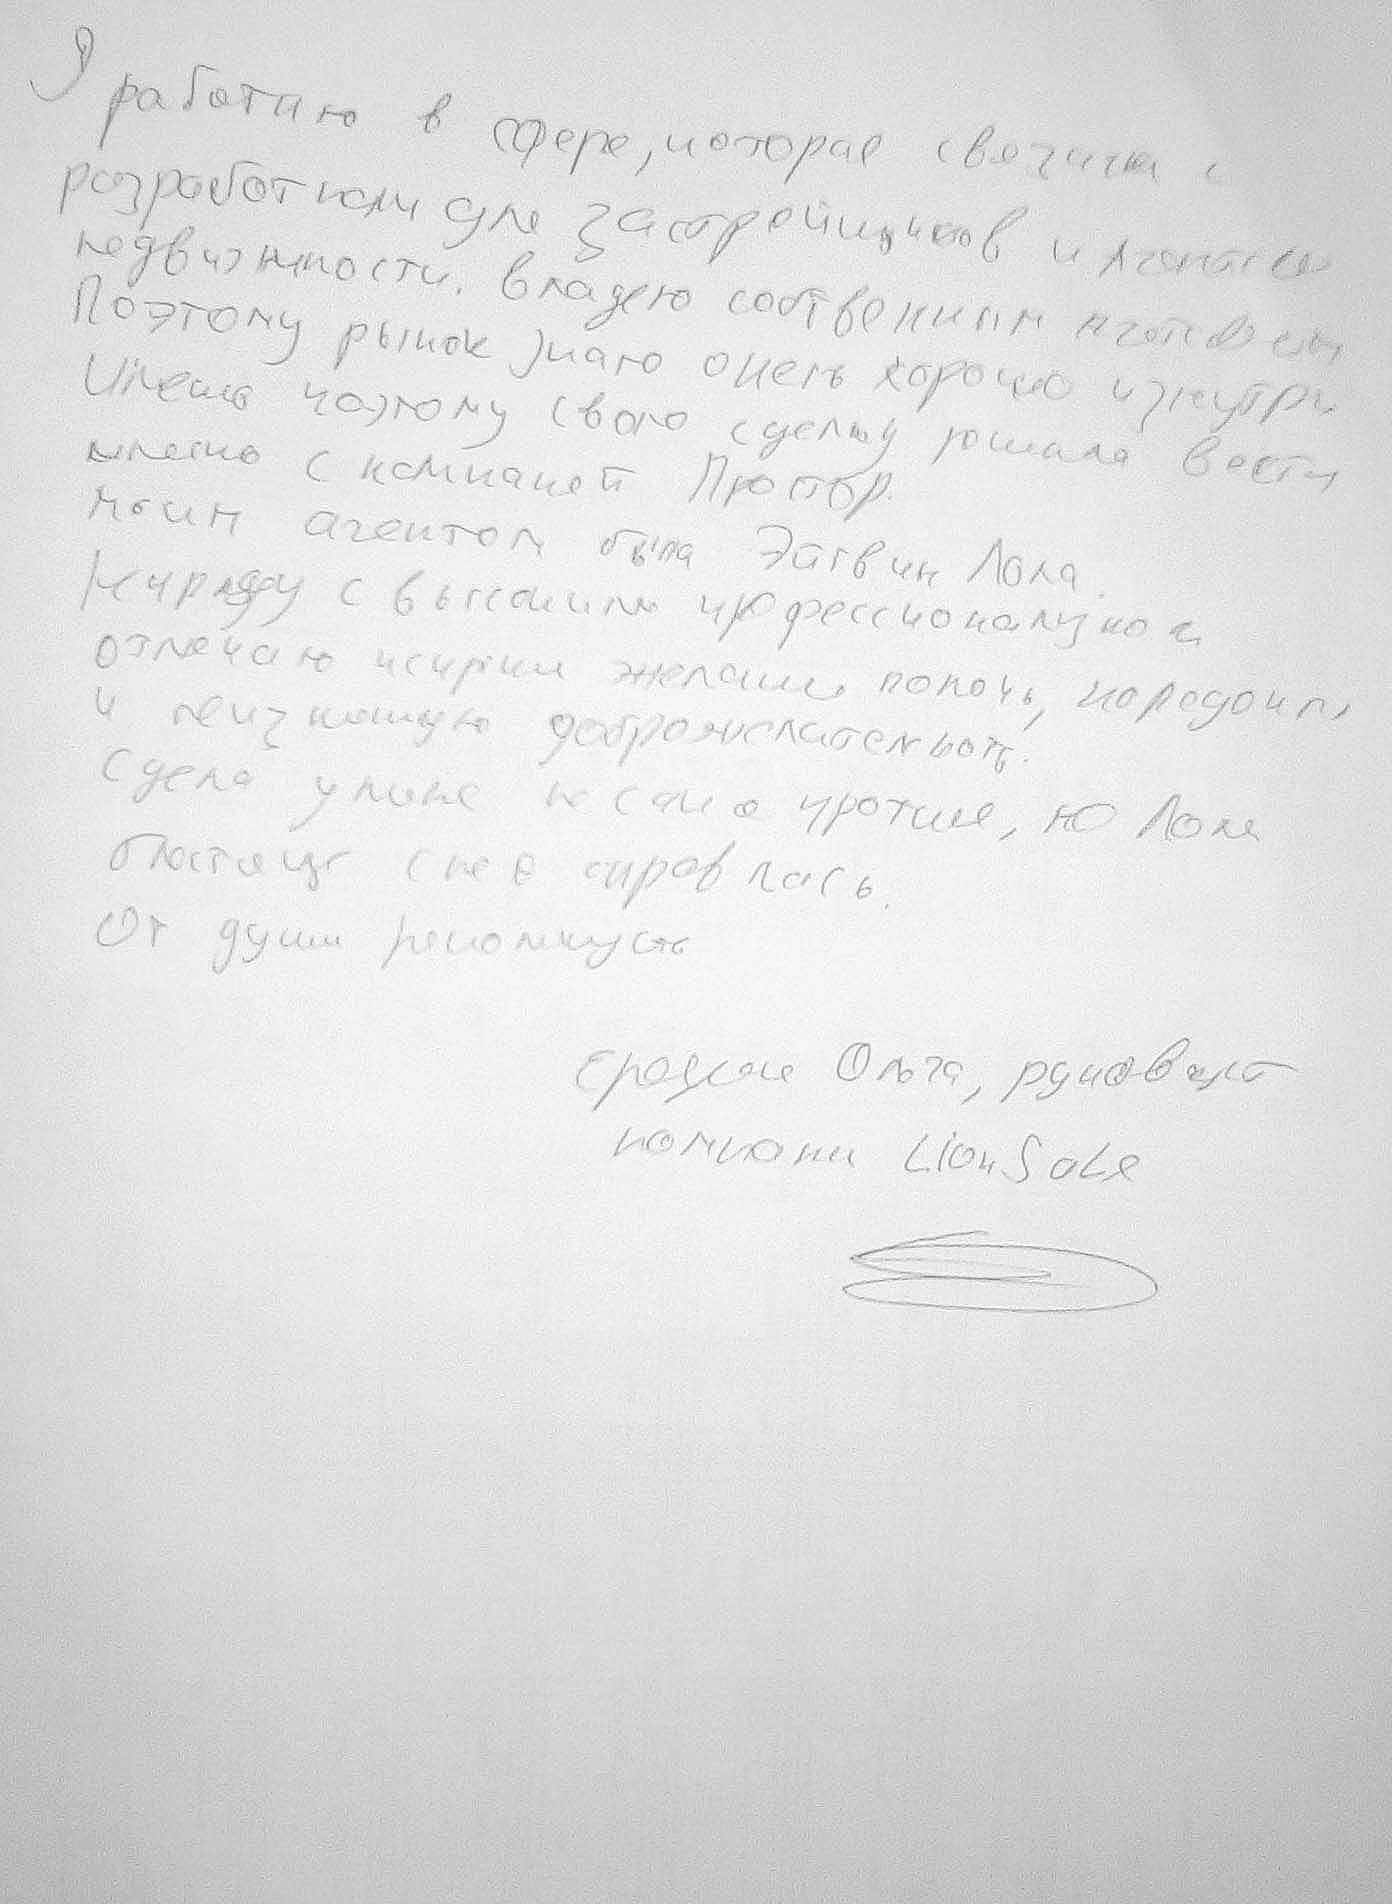 Я работаю в сфере, которая связана с
разработками для застройщиков и агентств
недвижимости. Владею собственным агентством
Поэтому рынок знаю очень хорошо изнутри
Именно поэтому свою сделку решила вести
именно с компанией
Моим агентом была Лола.
Наряду с высоким профессионализмом
отмечаю искреннее желание помочь,
и неизменную доброжелательность.
Сделка у меня не самая простая, но Лола
блестяще с ней справлась.
От души рекомендую
Ольга, руководитель
компании LionSale